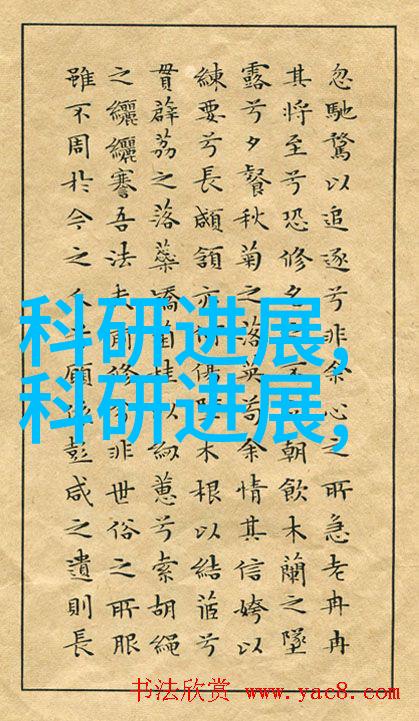 忽馳騖以追逐兮非余心之所急老冉冉
其將至兮恐修名朝飲木蘭之墜
露兮夕餐秋菊之落英苟余情其信姱以
練要兮長顑頷亦何傷擥木根以結茝兮
貫薜荔之落蘂矯菌桂以紉蕙兮索胡繩
之纚纚謇吾法夫前修兮非世俗之所服
雖不周於今之人兮願依彭咸之遺則長
科研进展,
科研进展,
书法欣赏 www.yac8.com